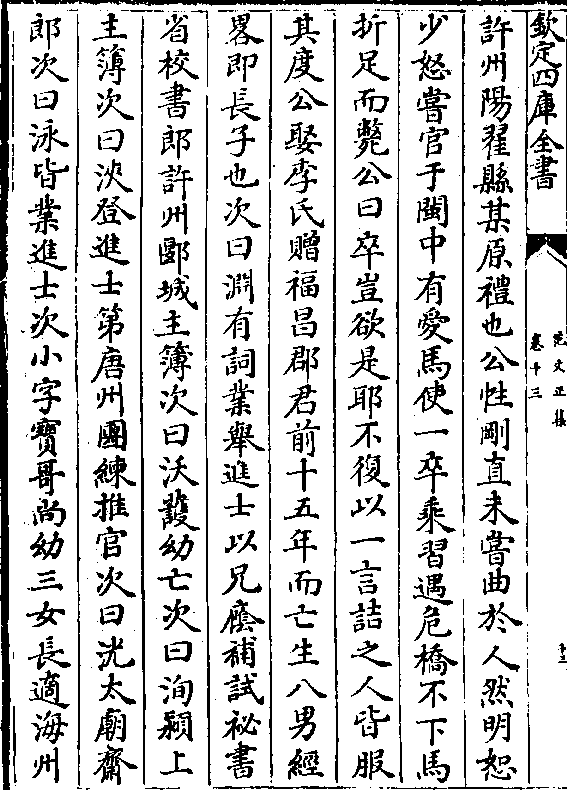 欽定四庫全書
范文正集
卷十三
許州陽翟縣某原禮也公性剛直未嘗曲於人然明恕
少怒嘗官于閩中有愛馬使一卒乘習遇危橋不下馬
折足而斃公曰卒豈欲是耶不復以一言詰之人皆服
其度公娶李氏贈福昌郡君前十五年而亡生八男經
畧即長子也次曰淵有詞業舉進士以兄廕補試祕書
省校書郎許州郾城主簿次曰沃䕶幼亡次曰洵潁上
主簿次曰泱登進士第唐州團練推官次曰洸太廟齋
郎次曰泳皆業進士次小字寶哥尚幼三女長適海州